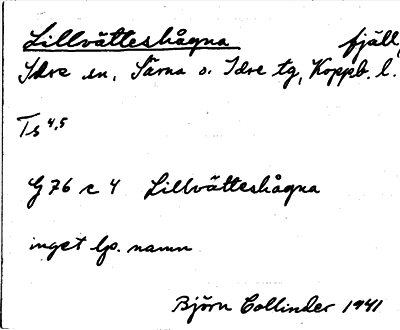 Lillvätteshågna fjäll,
Idre sn, Särna o. Idre tg, Koppb. l.
Ts 4,5
G 76 c 4 Lillvätteshågna
inget lp. namn
Björn Collinder 1941